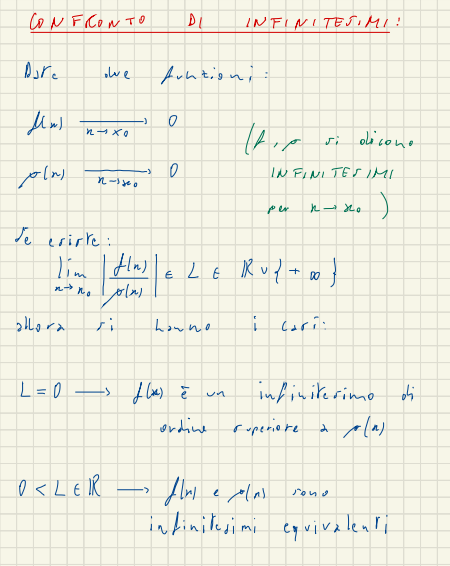 CONFRONTO DI INFINITESIMI:
Date due funzioni:
f(x) ⟶ 0
x→x₀
g(x) ⟶ 0
x→x₀
(f, g si dicono
INFINITESIMI
per x→x₀)
Se esiste:
lim |f(x)/g(x)| ∈ L ∈ ℝ ∪ {+∞}
x→x₀
allora si hanno i casi:
L = 0 ⟶ f(x) è un infinitesimo di
ordine superiore a g(x)
0 < L ∈ ℝ ⟶ f(x) e g(x) sono
infinitesimi equivalenti